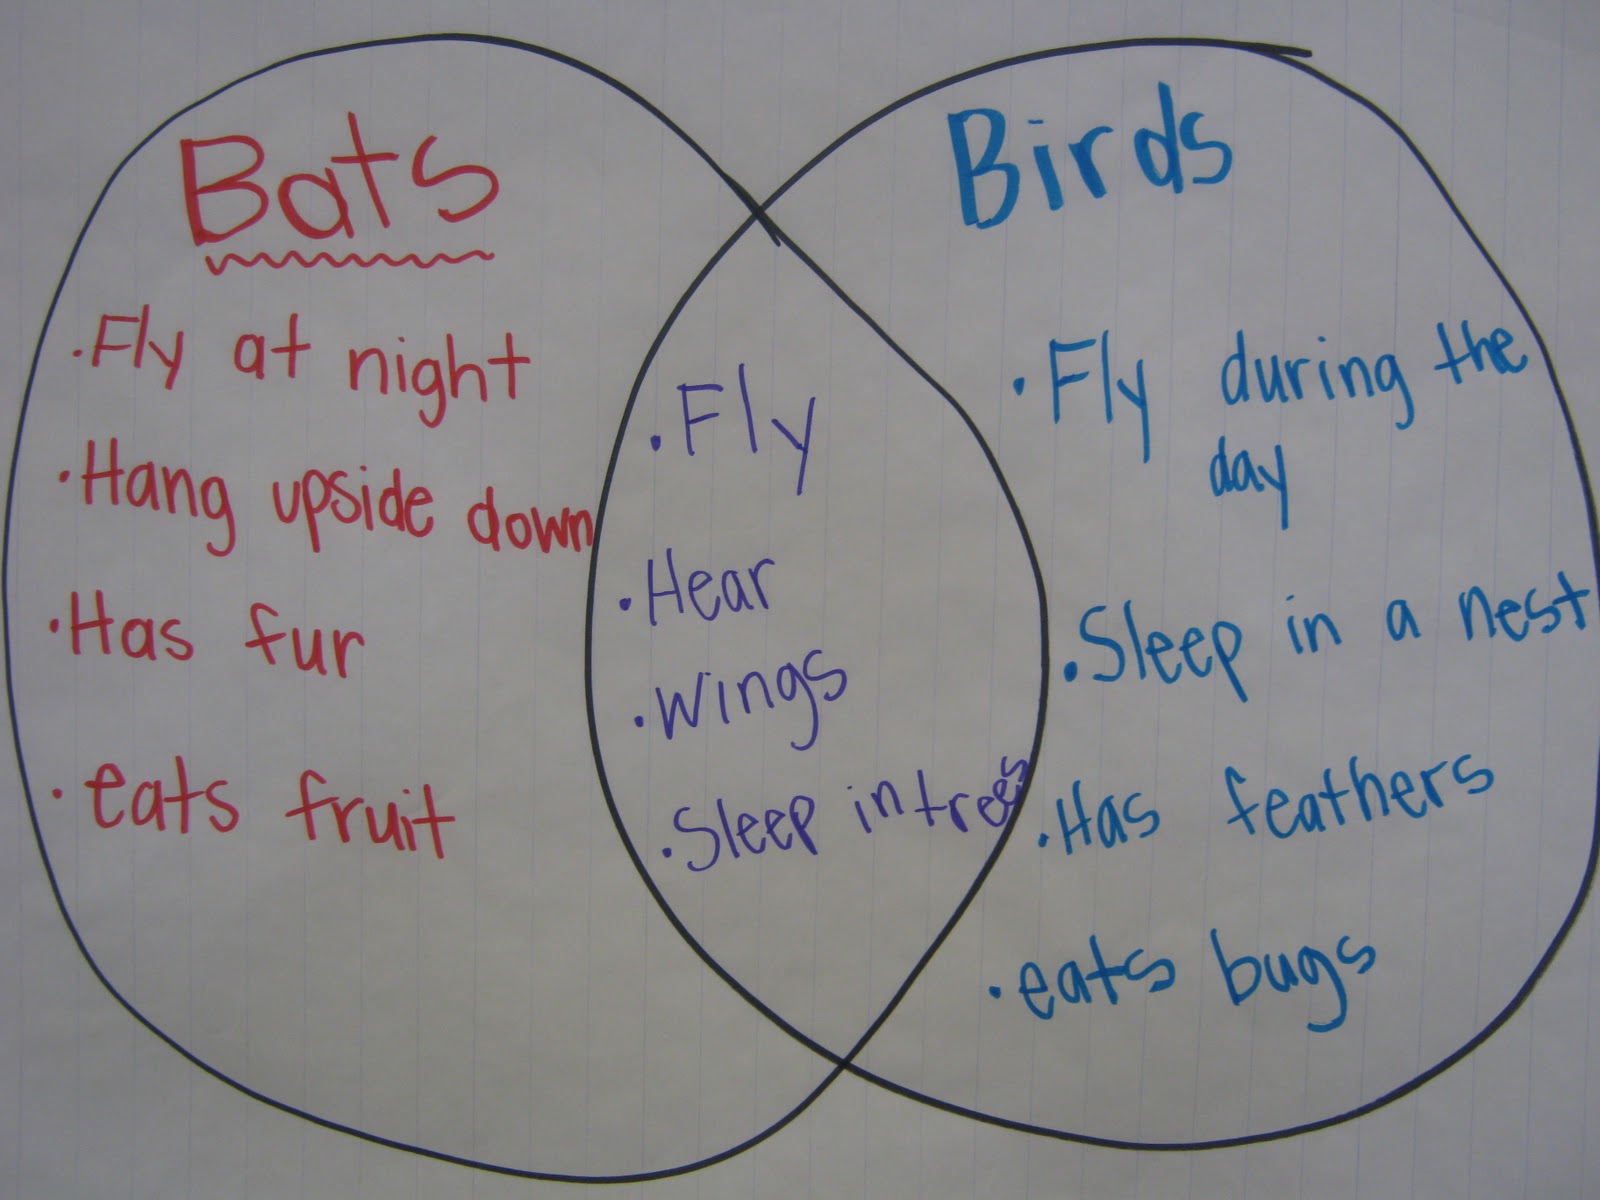 Bats
·Fly at night
·Hang upside down
·Has fur
·eats fruit
·Fly
·Hear
·wings
·Sleep in trees
Birds
·Fly during the
day
·Sleep in a nest
·Has feathers
·eats bugs